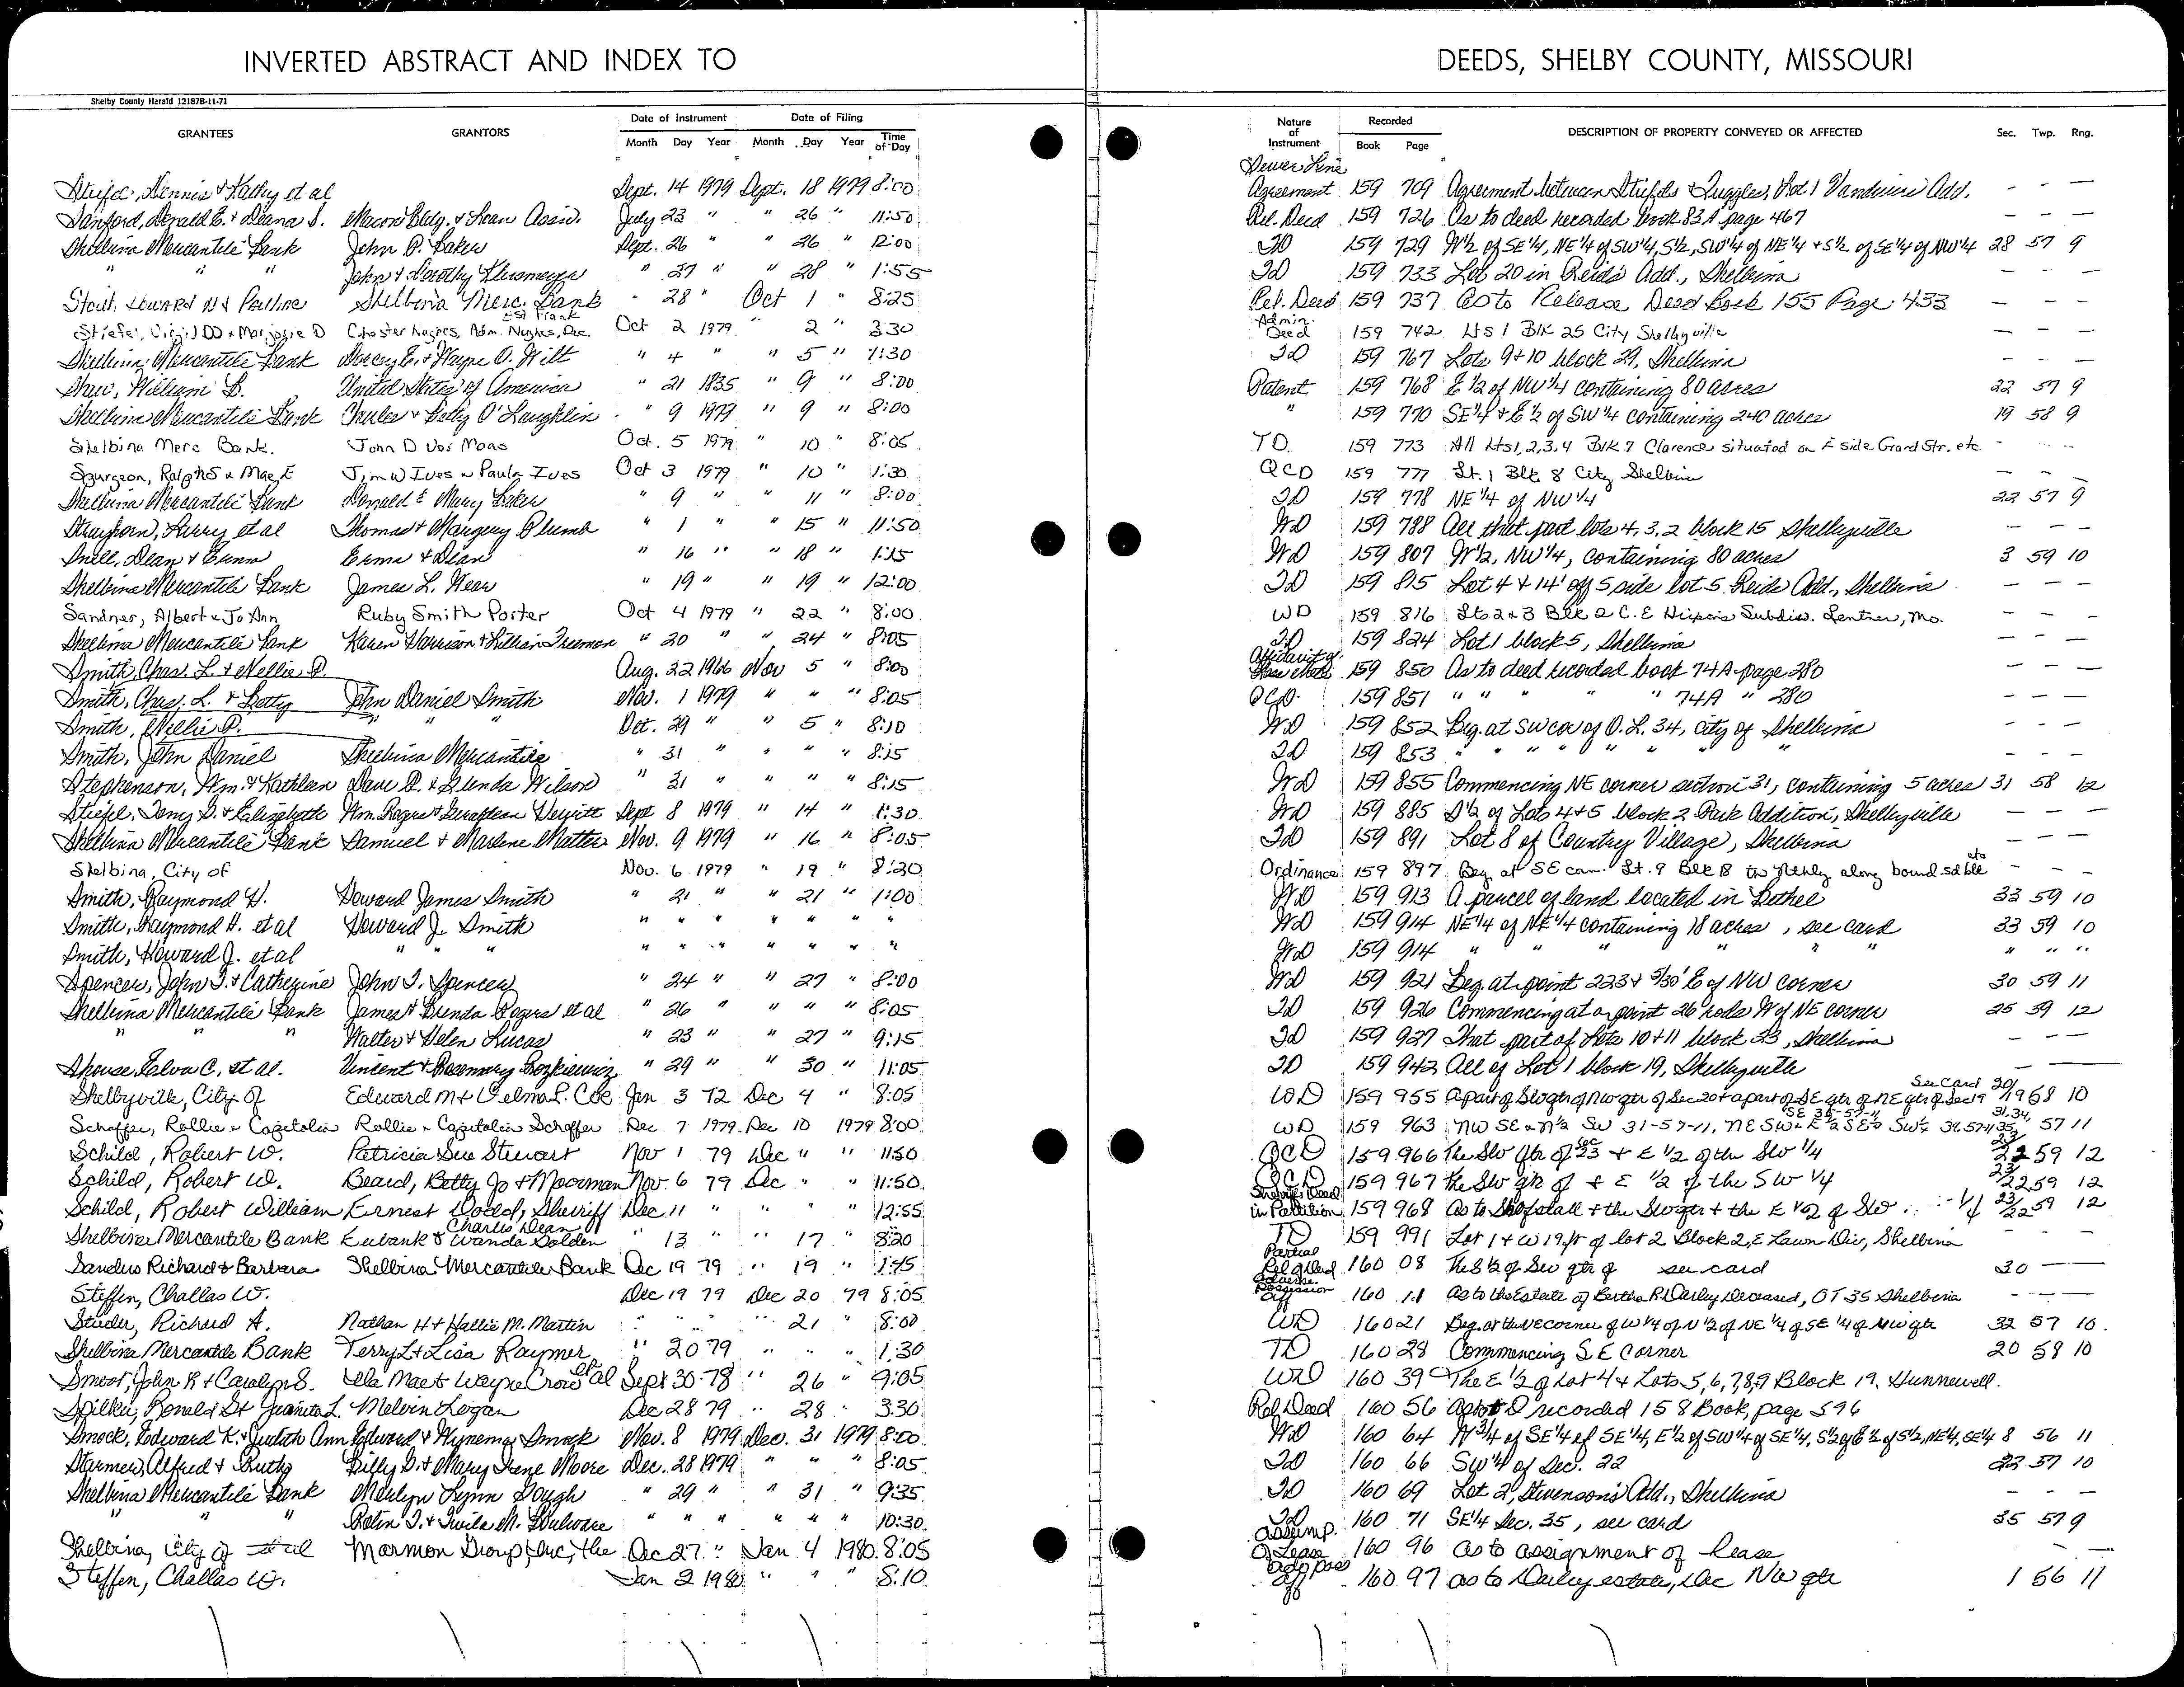 INVERTED ABSTRACT AND INDEX TO DEEDS, SHELBY COUNTY, MISSOURI
Shelby County Herald 12187B-11-71
Date of Instrument Date of Filing Nature of Instrument Recorded
GRANTEES GRANTORS Month Day Year Month Day Year Time of Day Book Page DESCRIPTION OF PROPERTY CONVEYED OR AFFECTED Sec. Twp. Rng.
Sewer Line
Stiefel, Dennis & Kathy et al Sept. 14 1979 Sept. 18 1979 8:00 Agreement 159 709 Agreement between Stiefels & Ruggles, Lot 1 Add. - - -
Sanford, Donald E. & Deana S. Macon Bldg. & Loan Assn. July 23 " " 26 " 11:50 Rel. Deed 159 726 As to deed recorded book 83A page 467 - - -
Shelbina Mercantile Bank John P. Baker Sept. 26 " " 26 " 12:00 TD 159 729 W½ of SE¼, NE¼ of SW¼, S½, SW¼ of NE¼ & S½ of SE¼ of NW¼ 28 57 9
" " " John & Dorothy " 27 " " 28 " 1:55 TD 159 733 Lot 20 in Reid's Add., Shelbina - - -
Stout, Edward N & Pauline Shelbina Merc. Bank " 28 " Oct 1 " 8:25 Rel. Deed 159 737 as to Release Deed Book 155 Page 433 - - -
Stiefel, Virgil DD & Marjorie D Chester Hughes, Adm. Est Frank Hughes, Dec. Oct 2 1979 " 2 " 3:30 Admin. Deed 159 742 Lts 1 Blk 25 City Shelbyville - - -
Shelbina Mercantile Bank Dorcey E. & Wayne O. Wilt " 4 " " 5 " 1:30 TD 159 767 Lots 9+10 block 29, Shelbina - - -
William B. United States of America " 21 1835 " 9 " 8:00 Patent 159 768 E½ of NW¼ containing 80 acres 22 57 9
Shelbina Mercantile Bank Charles & Betty O'Laughlin " 9 1979 " 9 " 8:00 " 159 770 SE¼ & E½ of SW¼ containing 240 acres 19 58 9
Shelbina Merc Bank. John D Vos Maas Oct. 5 1979 " 10 " 8:05 T.D. 159 773 All Lts 1,2,3,4 Blk 7 Clarence situated on E side Grand Str. etc - - -
Spurgeon, Ralph S & Mae E Jim W Ives & Paula Ives Oct 3 1979 " 10 " 1:30 QCD 159 777 Lt. 1 Blk 8 City Shelbina - - -
Shelbina Mercantile Bank Donald & Mary Baker " 9 " " 11 " 8:00 TD 159 778 NE¼ of NW¼ 22 57 9
Strayhorn, Larry et al Thomas & Margery Plumb " 1 " " 15 " 11:50 WD 159 788 All that part lots 4, 3, 2 block 15 Shelbyville - - -
Snell, Dean & Erma Erma & Dean " 16 " " 18 " 1:15 WD 159 807 W½, NW¼, containing 80 acres 3 59 10
Shelbina Mercantile Bank James L. Wear " 19 " " 19 " 12:00 TD 159 815 Lot 4 & 14' off S side lot 5 Reids Add., Shelbina - - -
Sandner, Albert & Jo Ann Ruby Smith Porter Oct 4 1979 " 22 " 8:00 WD 159 816 Lts 2 & 3 Blk 2 C.E Hixons Subdiv. Lentner, Mo. - - -
Shelbina Mercantile Bank Karen Harrison & Lillian Freeman " 20 " " 24 " 8:05 TD 159 824 Lot 1 block 5, Shelbina - - -
Smith, Chas. L. & Nellie P. Aug. 22 1966 Nov 5 " 8:00 Affidavit of 159 850 As to deed recorded book 74A page 280 - - -
Smith, Chas. L. & Betty John Daniel Smith Nov. 1 1979 " " " 8:05 QCD 159 851 " " " " 74A " 280 - - -
Smith, Nellie P. " " " Oct. 29 " " 5 " 8:10 WD 159 852 Beg. at SW cor of O.L. 34, City of Shelbina - - -
Smith, John Daniel Shelbina Mercantile " 31 " " " " 8:15 TD 159 853 " " " " " " " - - -
Stephenson, Wm. & Kathleen Dave R. & Glenda Wilson " 31 " " " " 8:15 WD 159 855 Commencing NE corner section 31, containing 5 acres 31 58 12
Stiefel, Tony D. & Elizabeth Wm. Roger & Geraldean Sept 8 1979 " 14 " 1:30 WD 159 885 S½ of Lots 4+5 block 2 Park Addition, Shelbyville - - -
Shelbina Mercantile Bank Samuel & Marlene Matter Nov. 9 1979 " 16 " 8:05 TD 159 891 Lot 8 of Country Village, Shelbina - - -
Shelbina, City of Nov. 6 1979 " 19 " 8:30 Ordinance 159 897 Beg. at SE corn. Lt. 9 Blk 18 th Nthly along bound. sd blk etc - -
Smith, Raymond H. Howard James Smith " 21 " " 21 " 1:00 WD 159 913 A parcel of land located in Bethel 33 59 10
Smith, Raymond H. et al Howard J. Smith " " " " " " " WD 159 914 NE¼ of NE¼ containing 18 acres, see card 33 59 10
Smith, Howard J. et al " " " " " " " " " " WD 159 914 " " " " " " " "
Spencer, John T. & Catherine John T. Spencer " 24 " " 27 " 8:00 WD 159 921 Beg. at point 223 + 5/30' E of NW corner 30 59 11
Shelbina Mercantile Bank James & Brenda Rogers et al " 26 " " " " 8:05 TD 159 926 Commencing at a point 26 rods W of NE corner 25 59 12
" " " Walter & Helen Lucas " 23 " " 27 " 9:15 TD 159 927 That part of Lots 10+11 block 23, Shelbina - - -
Melva C. et al. Vincent & Rosemary " 29 " " 30 " 11:05 TD 159 942 All of Lot 1 block 19, Shelbyville - - -
Shelbyville, City Of Edward M & Velma L. Coe Jan 3 72 Dec 4 " 8:05 WD 159 955 a part of SW qtr of NW qtr of Sec 20 & a part of SE qtr of NE qtr of Sec 19 See Card 20/19 58 10
Schaffer, Rollie & Capitolia Rollie & Capitolia Schaffer Dec 7 1979 Dec 10 1979 8:00 WD 159 963 NW SE & N½ SW 31-57-11, 57 11
Schild, Robert W. Patricia Sue Stewart Nov 1 79 Dec " " 11:50 QCD 159 966 The SW Qtr of Sec 23 & E 1/2 of the SW 1/4 23/22 59 12
Schild, Robert W. Beard, Betty Jo & Moorman Nov. 6 79 Dec " " 11:50 QCD 159 967 the SW qtr of & E 1/2 of the SW 1/4 23/22 59 12
Schild, Robert William Ernest Dodd, Sheriff Dec 11 " " " " 12:55 Sheriff's Deed in Partition 159 968 as to & the SW qtr & the E 1/2 of SW 1/4 23/22 59 12
Shelbina Mercantile Bank Eubank & Charles Dean Wanda Golden " 13 " " 17 " 8:20 TD 159 991 Lot 1 & W 19 ft of lot 2 Block 2, E Lawn Div, Shelbina
Sanders Richard & Barbara Shelbina Mercantile Bank Dec 19 79 " 19 " 1:45 Partial Rel of Deed 160 08 The S½ of SW qtr of see card 30 - -
Steffen, Challas W. Dec 19 79 Dec 20 79 8:05 Adverse Possession Aff 160 11 as to the Estate of Bertha R Darley Deceased, OT 35 Shelbina - - -
Studer, Richard A. Nathan H & Hallie M. Martin " " " " 21 " 8:00 WD 160 21 Beg. at the NE corner of W 1/4 of N 1/2 of NE 1/4 of SE 1/4 of NW qtr 32 57 10
Shelbina Mercantile Bank Terry L & Lisa Raymer " 20 79 " " " 1:30 TD 160 28 Commencing SE Corner 20 58 10
Smoot, John R & Carolyn S. Ila Mae & Wayne Crow et al Sept 30 78 " 26 " 9:05 WD 160 39 The E 1/2 of Lot 4 & Lots 5, 6, 7, 8, 9 Block 19, Hunnewell.
Spilker, Ronald D & Juanita L. Melvin Logan Dec 28 79 " 28 " 3:30 Rel Deed 160 56 recorded 158 Book, page 596
Smock, Edward K. & Judith Ann Edward & Wynema Smock Nov. 8 1979 Dec. 31 1979 8:00 WD 160 64 W¾ of SE¼ of SE¼, E½ of SW¼ of SE¼, S½ of E½ of S½, NE¼, SE¼ 8 56 11
Starmer, Alfred & Ruth Billy D. & Mary Irene Moore Dec. 28 1979 " " " 8:05 TD 160 66 SW¼ of Sec. 22 22 57 10
Shelbina Mercantile Bank Merilyn Lynn Gough " 29 " " 31 " 9:35 TD 160 69 Lot 2, Stevenson's Add., Shelbina - - -
" " " Rolin T. & Twila M. Boulware " " " " " " 10:30 TD 160 71 SE¼ Sec. 35, see card 35 57 9
Shelbina, City of Marmon Group, Inc, the Dec 27 " Jan 4 1980 8:05 Assump. of Lease 160 96 as to assignment of lease - -
Steffen, Challas W. Jan 2 1980 " " " 8:10 Adv poss Aff 160 97 as to Darley estate, Dec NW qtr 1 56 11